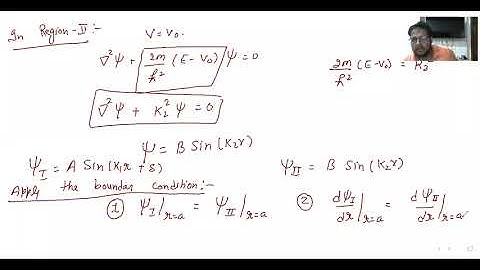 In Region-II :-
V = V₀.
∇²ψ + 2m/ħ² (E-V₀) ψ = 0
2m/ħ² (E-V₀) = K₂²
∇²ψ + K₂² ψ = 0
ψ = B Sin (K₂r)
ψ_I = A Sin (K₁r + δ)
ψ_II = B Sin (K₂r)
Apply the boundar condition :-
① ψ_I|r=a = ψ_II|r=a
② dψ_I/dr|r=a = dψ_II/dr|r=a